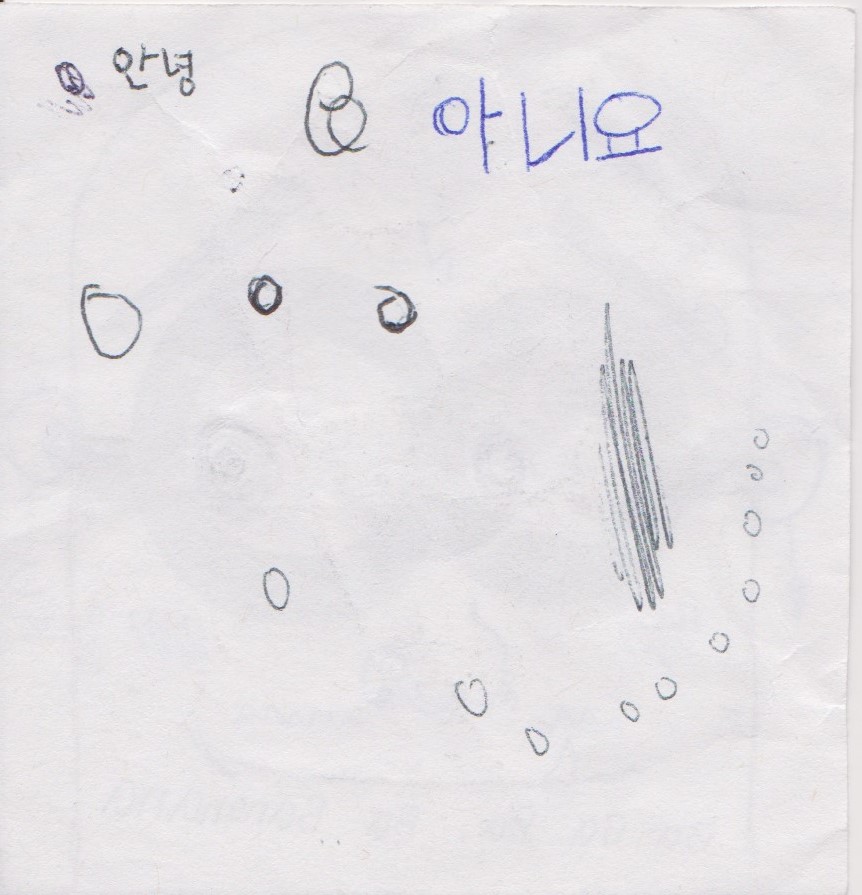 안녕
아니요